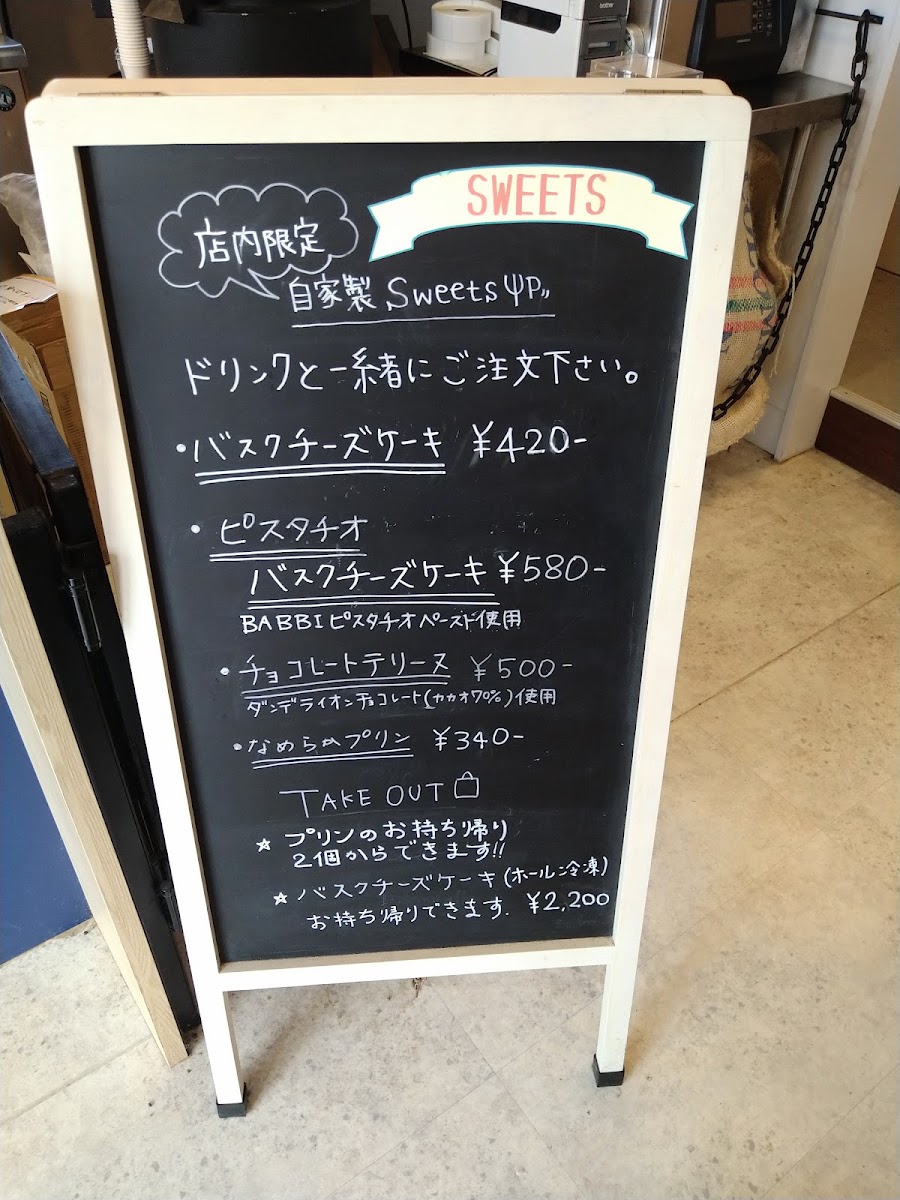 brother
SWEETS
店内限定
自家製 Sweets
ドリンクと一緒にご注文下さい。
・バスクチーズケーキ ¥420-
・ピスタチオ
バスクチーズケーキ ¥580-
BABBIピスタチオペースト使用
・チョコレートテリーヌ ¥500-
ダンデライオンチョコレート(カカオ70%)使用
・なめらかプリン ¥340-
TAKE OUT
☆ プリンのお持ち帰り
2個からできます!!
☆ バスクチーズケーキ(ホール冷凍)
お持ち帰りできます. ¥2,200